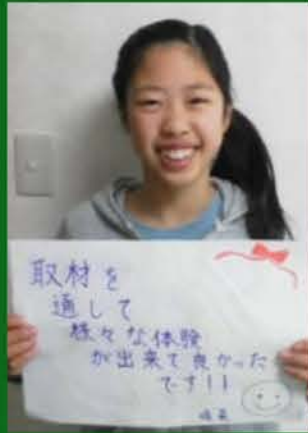 取材を
通して
様々な体験
が出来て良かった
です!!